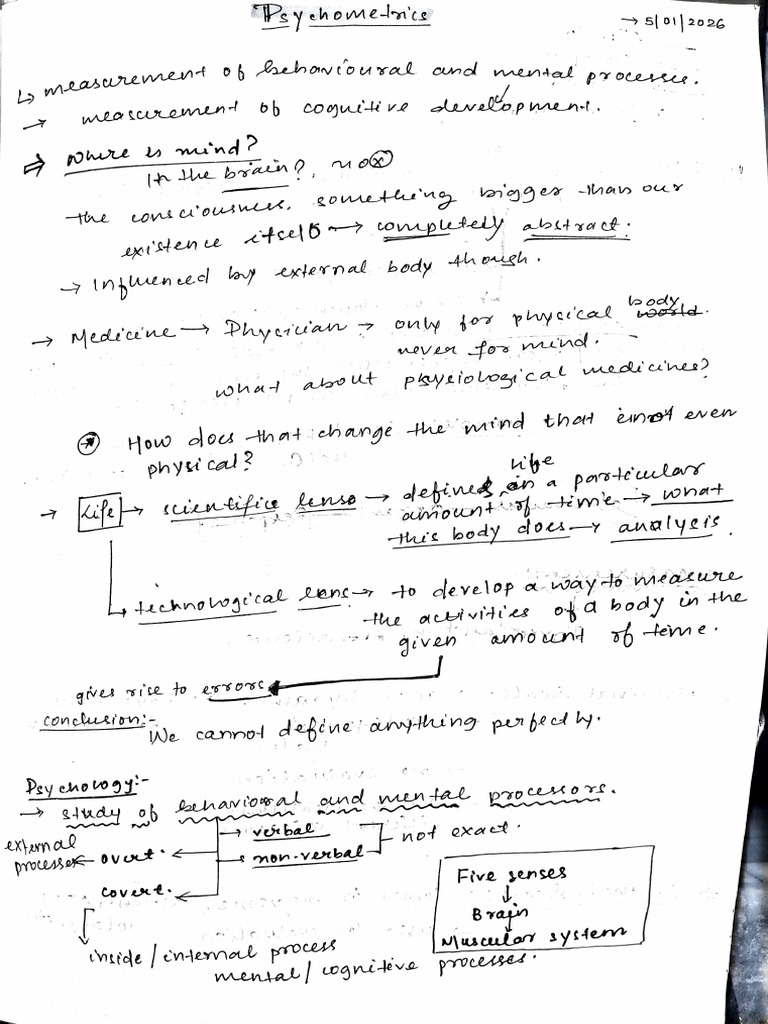 Psychometrics
→ 5/01/2026
↳ measurement of behavioural and mental processes.
→ measurement of cognitive development.
⇒ Where is mind?
In the brain?, no ⓧ
the consciousness. something bigger than our
existence itself → completely abstract.
→ Influenced by external body though.
→ Medicine → Physician → only for physical body world.
never for mind.
what about physiological medicines?
How does that change the mind that is not even
physical?
→ Life → scientific lense → defines life in a particular
amount of time → what
this body does → analysis.
technological lens → to develop a way to measure
the activities of a body in the
given amount of time.
gives rise to errors
conclusion:-
We cannot define anything perfectly.
Psychology:-
→ study of behavioral and mental processors.
→ verbal
→ non-verbal
not exact.
external
processes ← overt.
covert.
inside / internal process
mental / cognitive processes.
Five senses
↓
Brain
↓
Muscular system